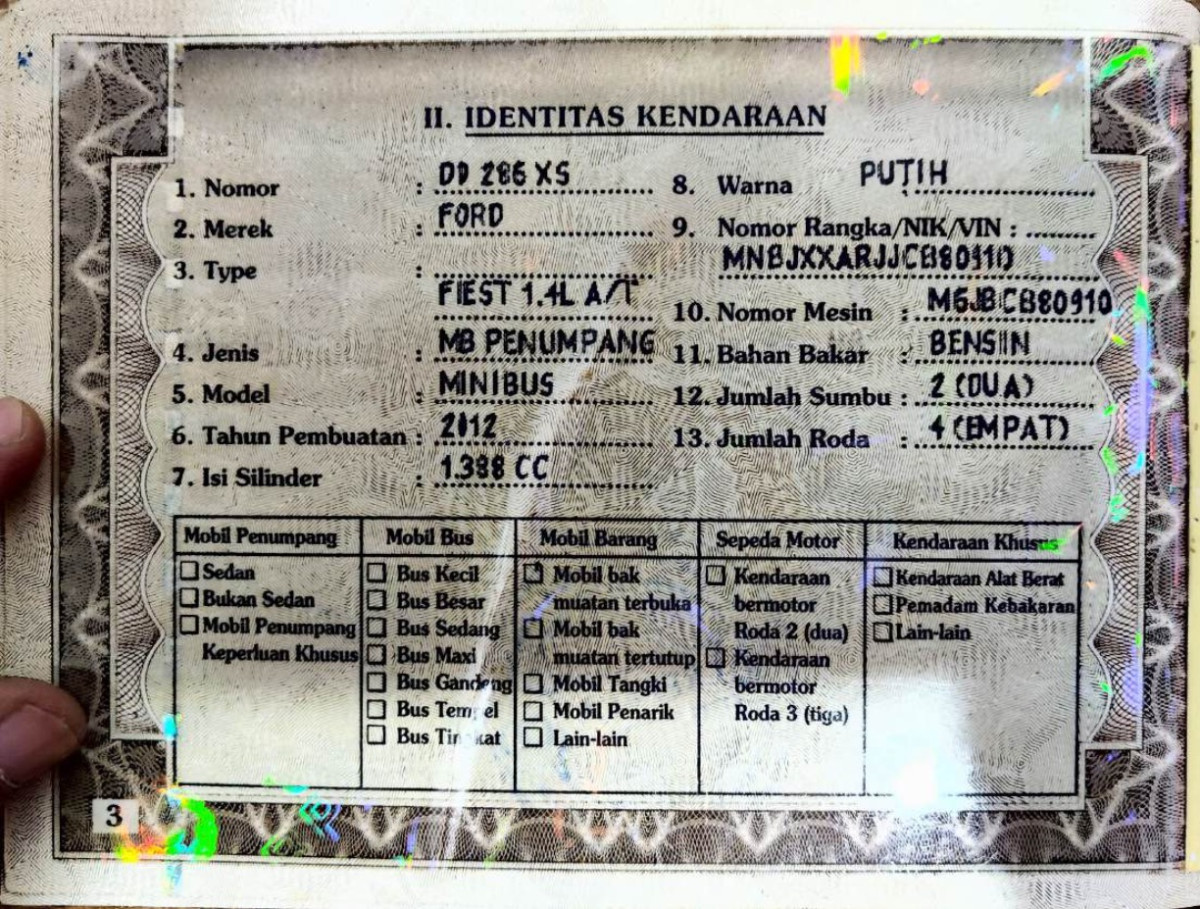 II. IDENTITAS KENDARAAN
1. Nomor : DD 286 XS
2. Merek : FORD
3. Type :
FIEST 1.4L A/T
4. Jenis : MB PENUMPANG
5. Model : MINIBUS
6. Tahun Pembuatan : 2012
7. Isi Silinder : 1.388 CC
8. Warna PUTIH
9. Nomor Rangka/NIK/VIN :
MNBJXXARJJCB80910
10. Nomor Mesin : M6JBCB80910
11. Bahan Bakar : BENSIN
12. Jumlah Sumbu : 2 (DUA)
13. Jumlah Roda : 4 (EMPAT)
Mobil Penumpang
Sedan
Bukan Sedan
Mobil Penumpang
Keperluan Khusus
Mobil Bus
Bus Kecil
Bus Besar
Bus Sedang
Bus Maxi
Bus Gandeng
Bus Tempel
Bus Tingkat
Mobil Barang
Mobil bak
muatan terbuka
Mobil bak
muatan tertutup
Mobil Tangki
Mobil Penarik
Lain-lain
Sepeda Motor
Kendaraan
bermotor
Roda 2 (dua)
Kendaraan
bermotor
Roda 3 (tiga)
Kendaraan Khusus
Kendaraan Alat Berat
Pemadam Kebakaran
Lain-lain
3